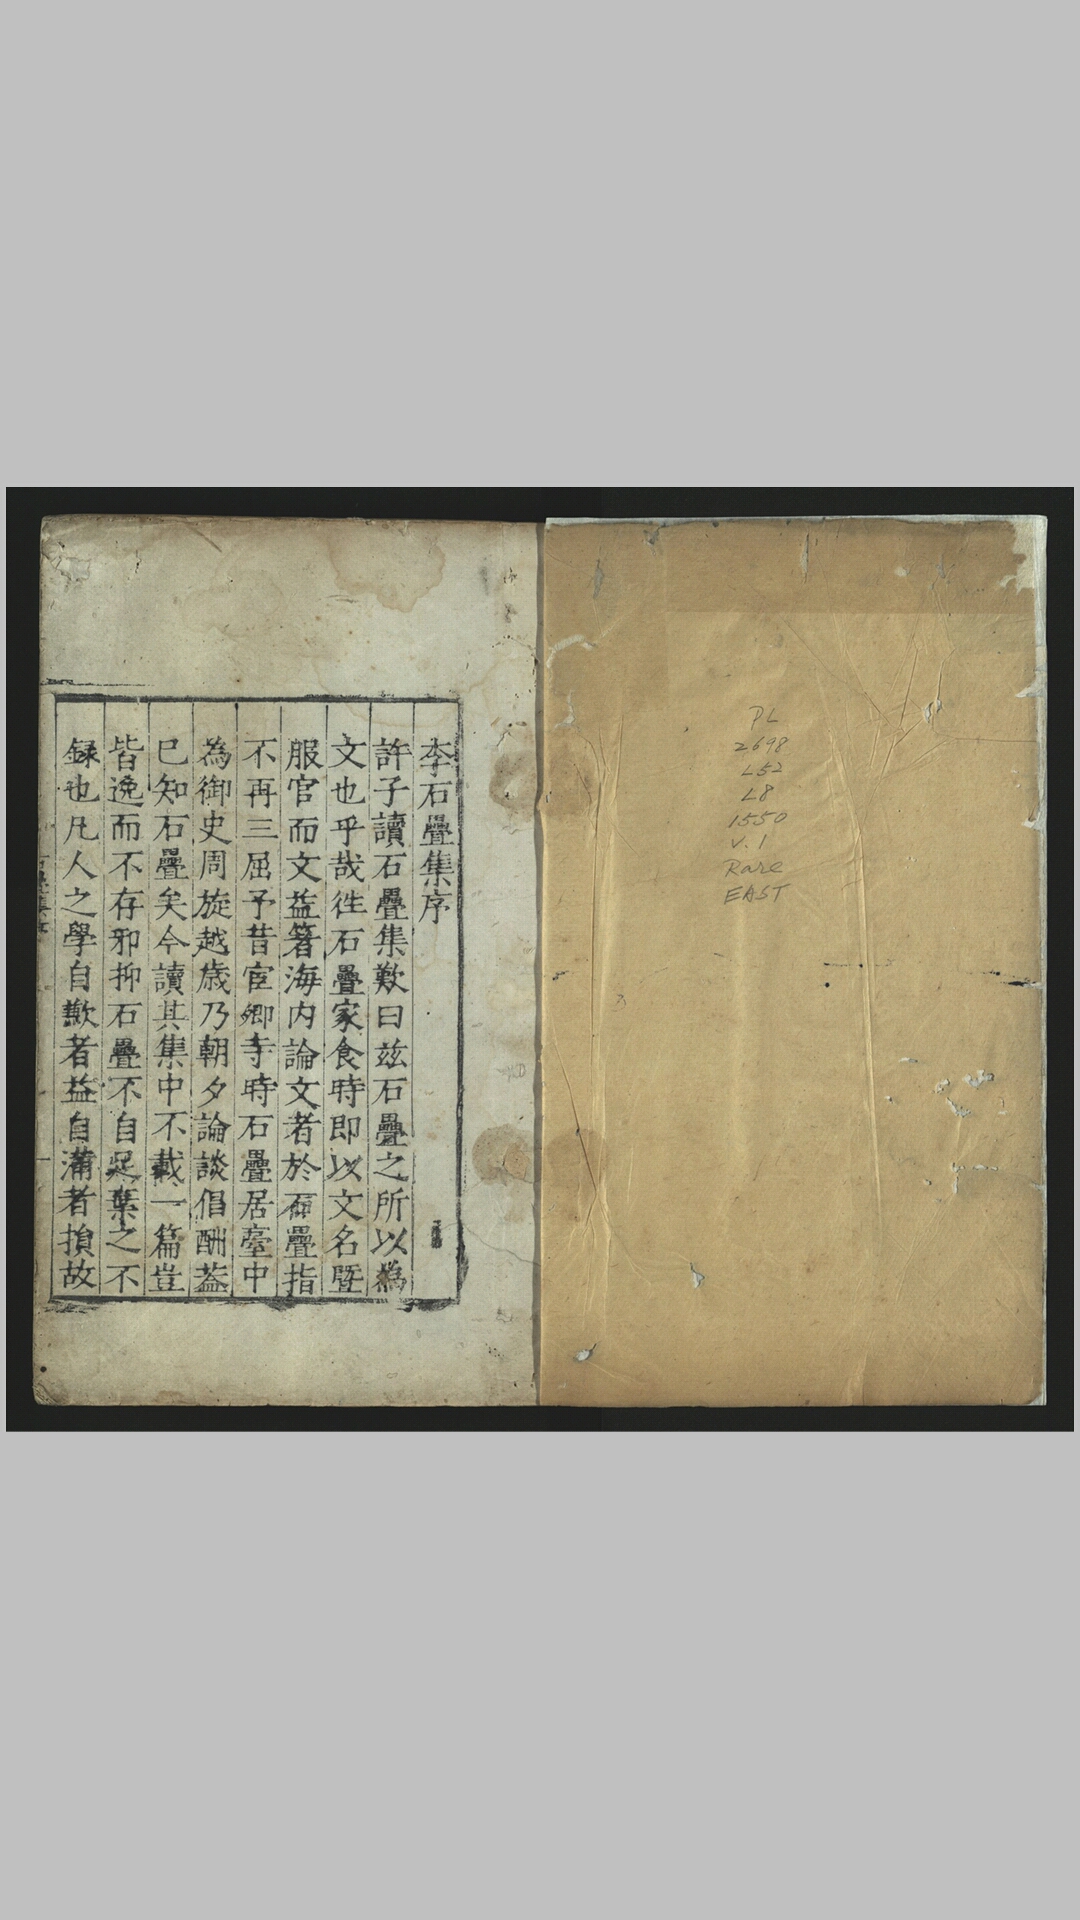 PL
2698
L52
L8
1550
v.1
Rare
EAST
李石疊集序
許子讀石疊集歎曰兹石疊之所以為
文也乎哉徃石疊家食時即以文名暨
服官而文益著海内論文者於石疊指
不再三屈予昔官卿寺時石疊居臺中
為御史周旋越歳乃朝夕論談倡酬葢
已知石疊矣今讀其集中不載一篇豈
皆逸而不存邪抑石疊不自足棄之不
録也凡人之學自歉者益自滿者損故